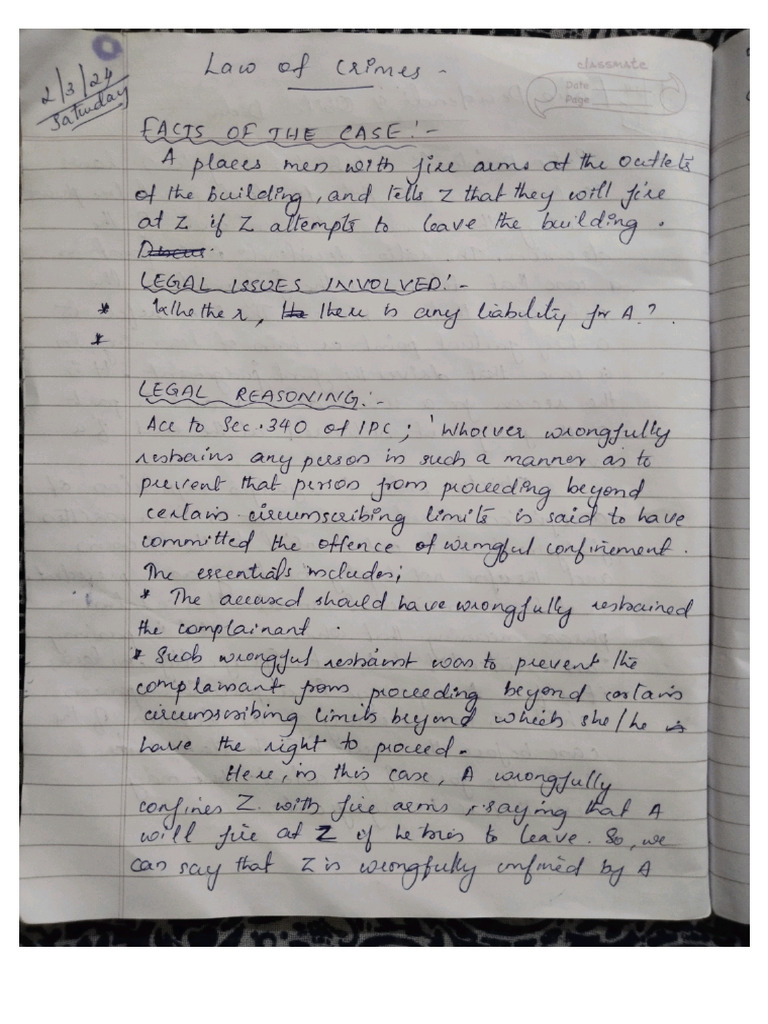 Law of Crimes -
classmate
Date
Page
2/3/24
Saturday
FACTS OF THE CASE :-
A places men with fire arms at the outlets
of the building, and tells Z that they will fire
at Z if Z attempts to leave the building.
LEGAL ISSUES INVOLVED :-
* Whether, there is any liability for A?
*
LEGAL REASONING :-
Acc to Sec. 340 of IPC ; 'Whoever wrongfully
restrains any person in such a manner as to
prevent that person from proceeding beyond
certain circumscribing limits is said to have
committed the offence of wrongful confinement.
The essentials includes;
* The accused should have wrongfully restrained
the complainant.
* Such wrongful restraint was to prevent the
complainant from proceeding beyond certain
circumscribing limits beyond which she/he
have the right to proceed.
Here, in this case, A wrongfully
confines Z with fire arms, saying that A
will fire at Z if he tries to leave. So, we
can say that Z is wrongfully confined by A